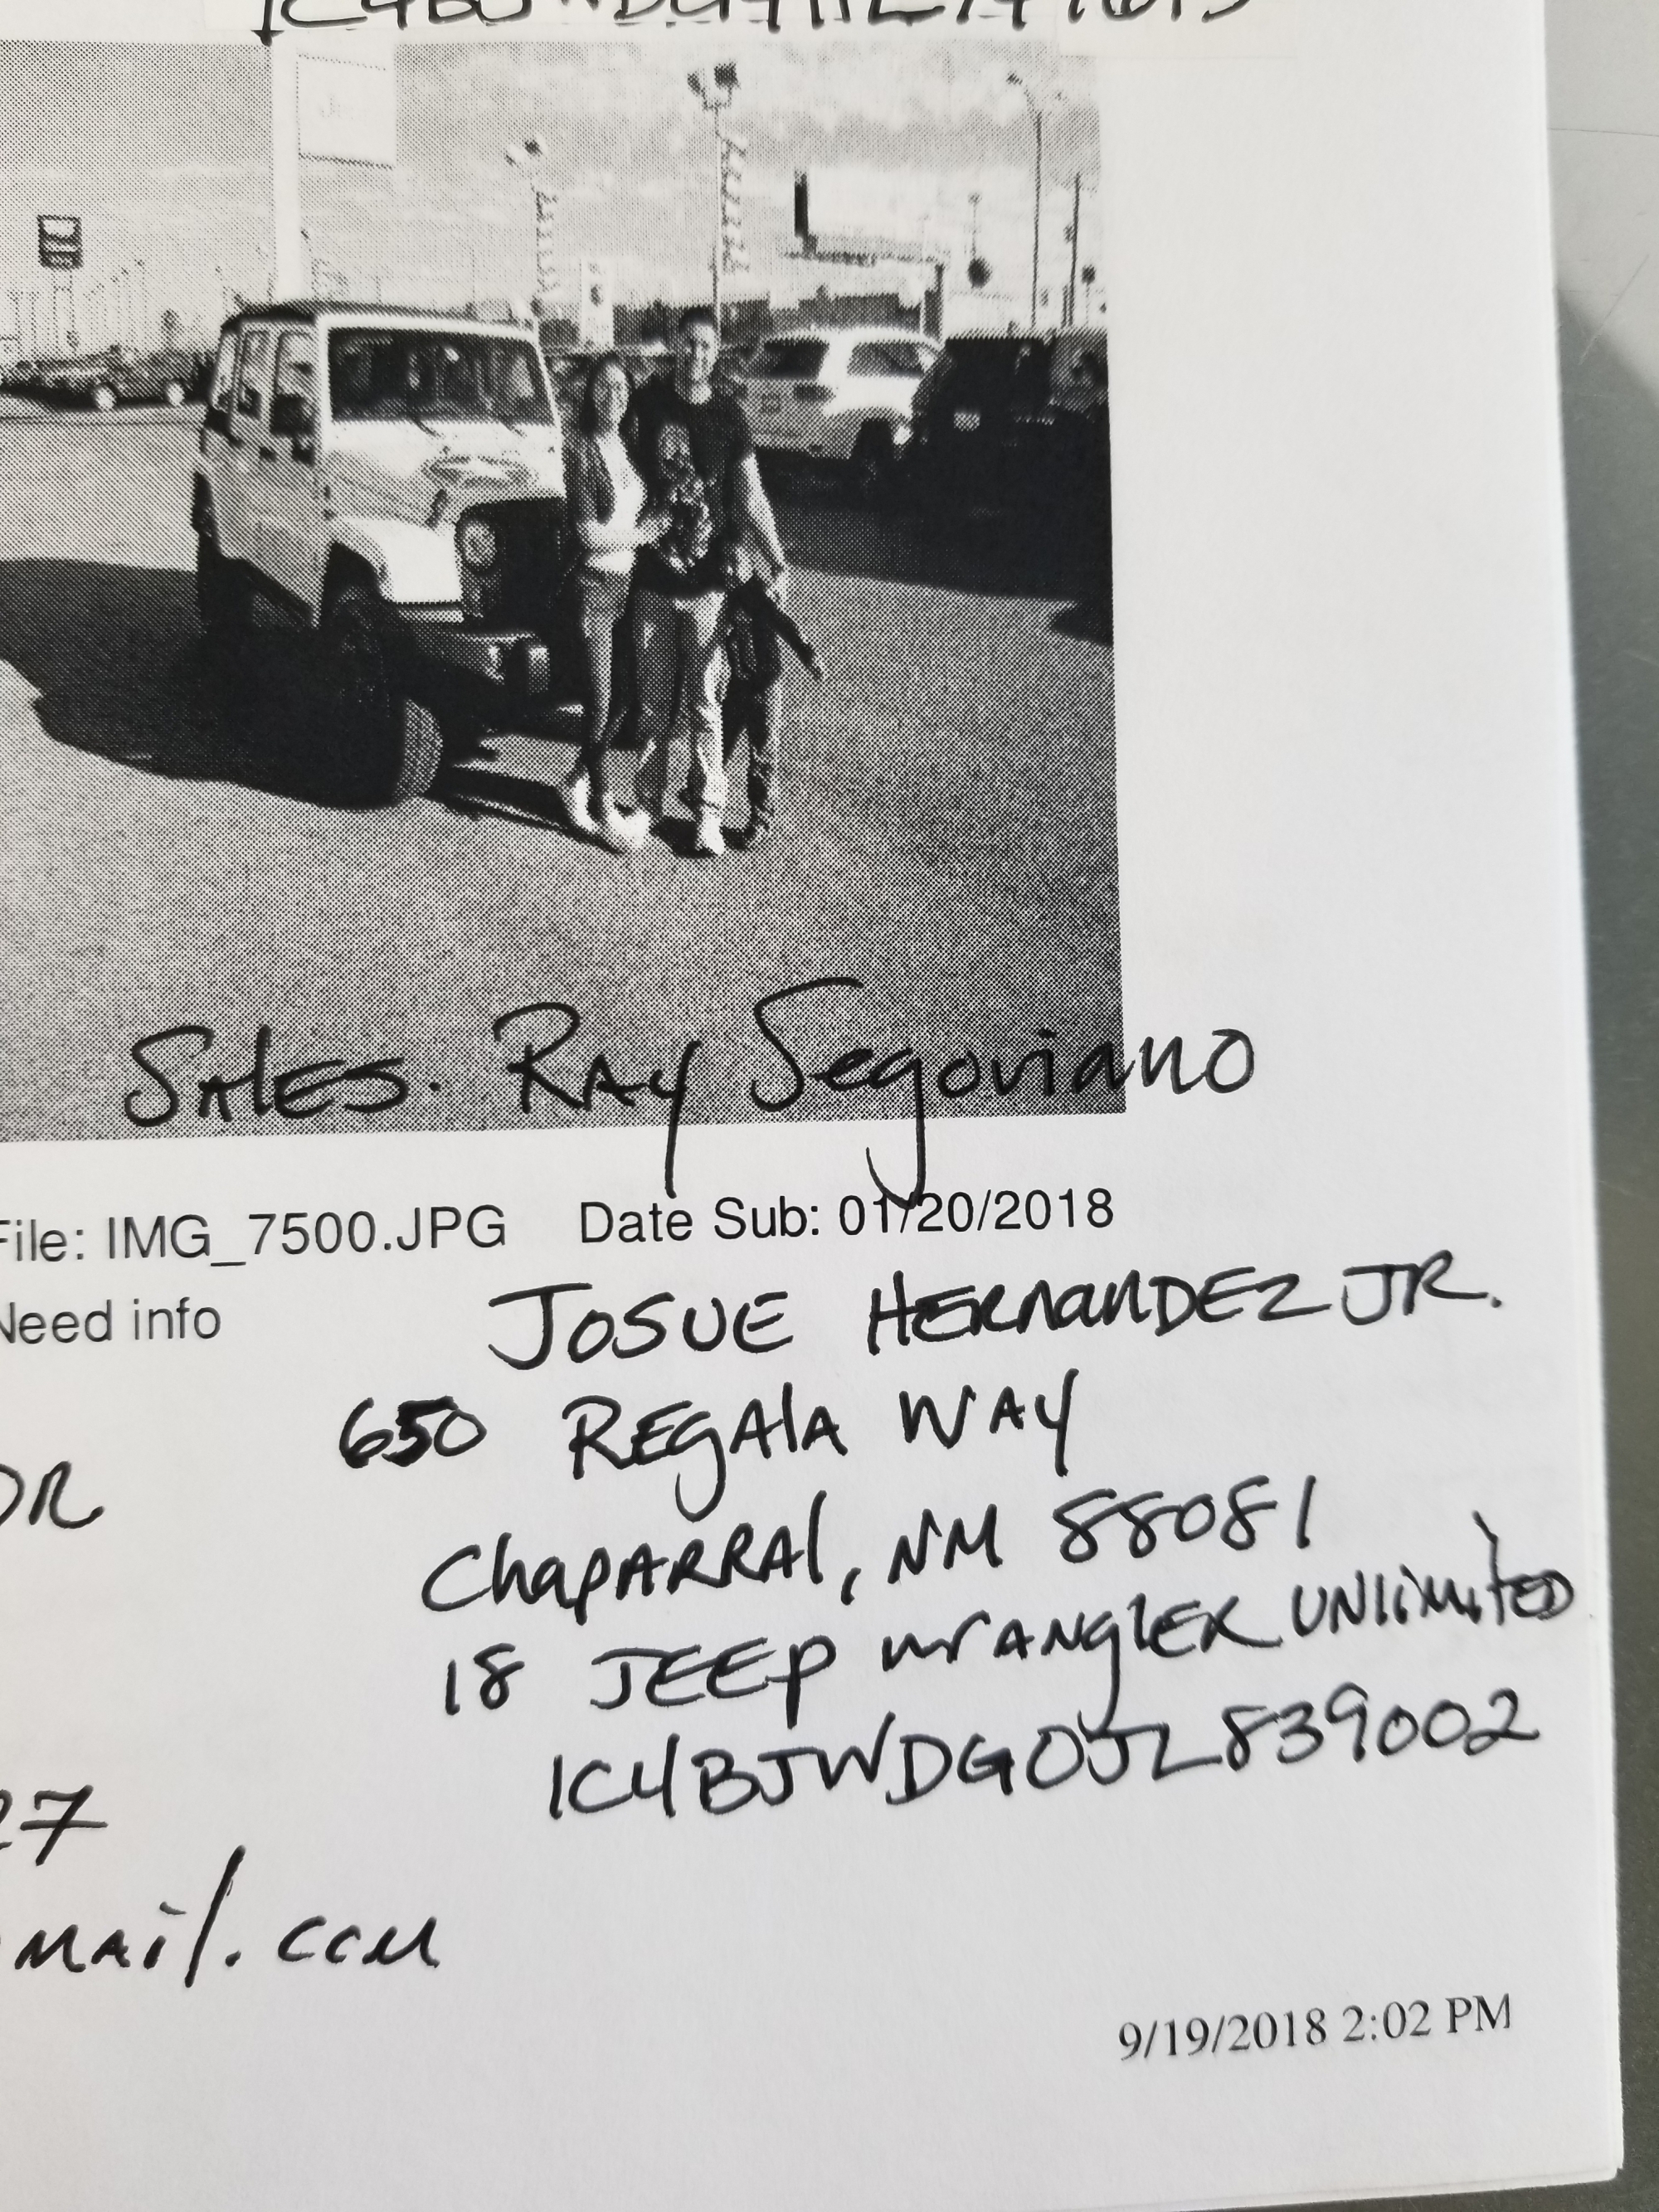 Sales. Ray Segoviano
File: IMG_7500.JPG Date Sub: 01/20/2018
Need info
JOSUE HERNANDEZ JR.
650 REgAlA WAY
ChapARRAl, NM 88081
18 JEEp WrANglER UNlimitED
1C4BJWDG0JL839002
DR
27
mail.com
9/19/2018 2:02 PM